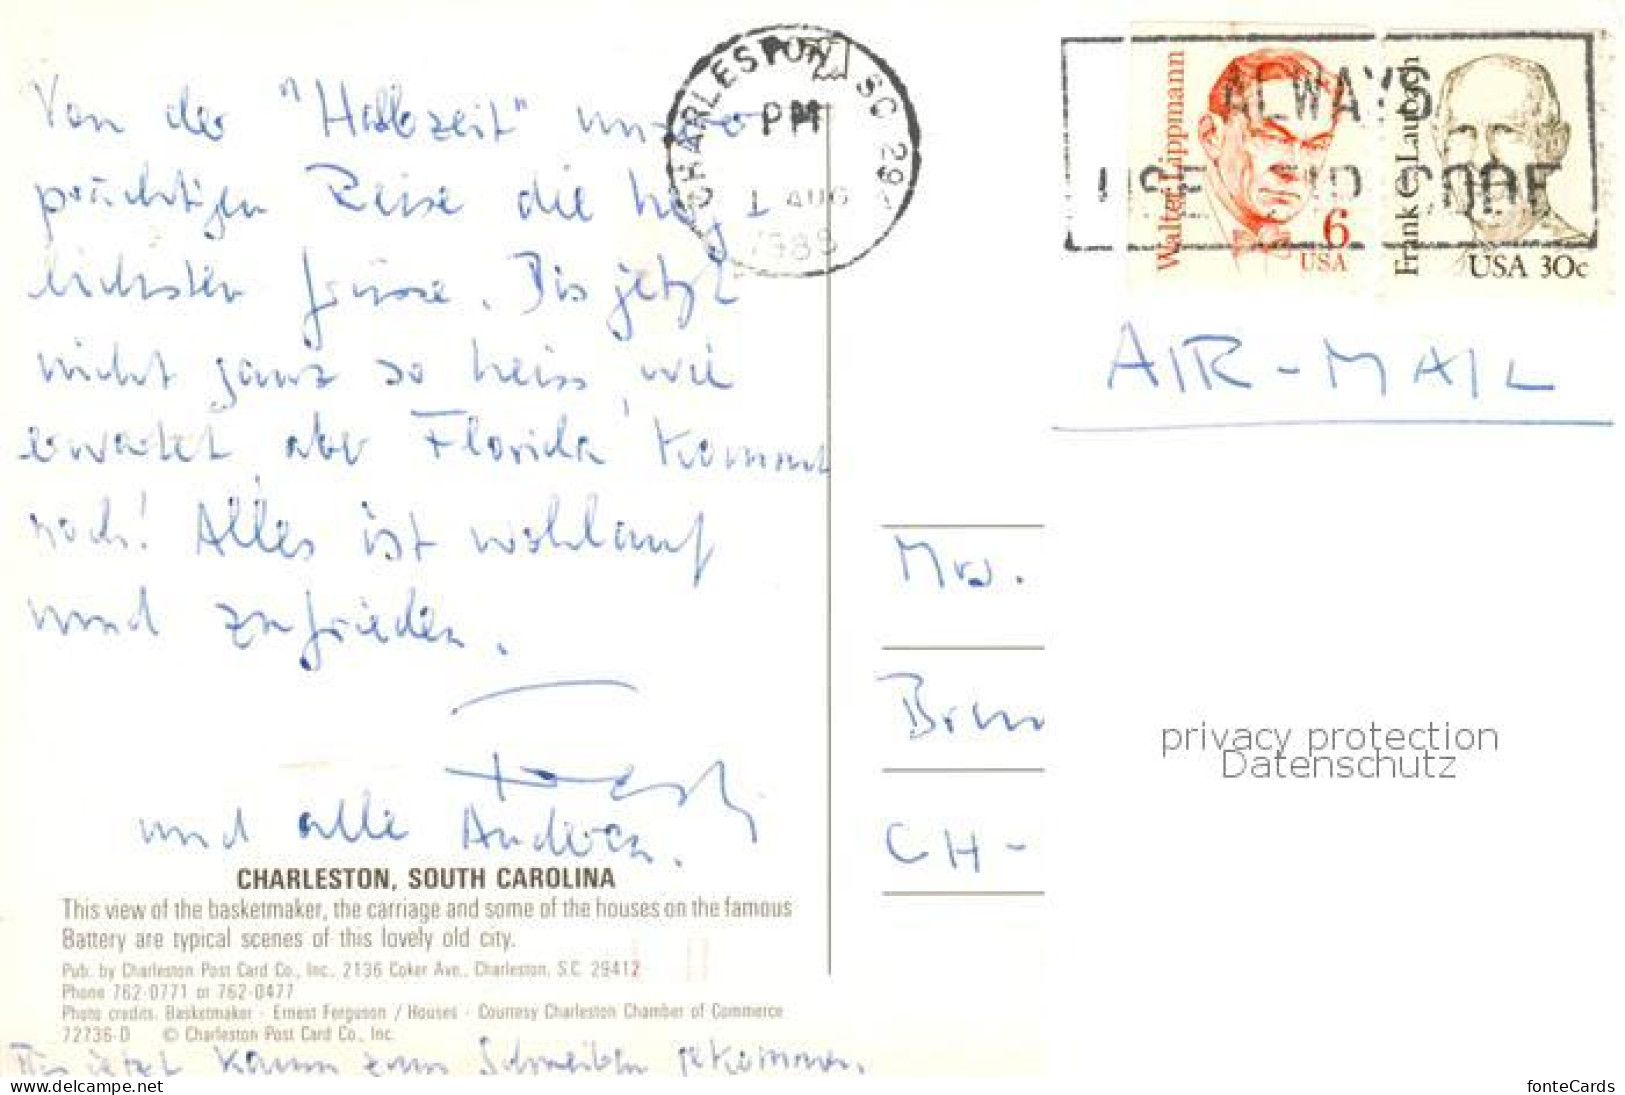 Von der "Halbzeit" unserer
prächtigen Reise die herz-
lichsten Grüsse. Bis jetzt
nicht ganz so heiss, wie
erwartet, aber Florida kommt
noch! Alles ist wohlauf
und zufrieden.
und alle Andern.
CHARLESTON, SOUTH CAROLINA
This view of the basketmaker, the carriage and some of the houses on the famous
Battery are typical scenes of this lovely old city.
Pub. by Charleston Post Card Co., Inc., 2136 Coker Ave., Charleston, S.C. 29412
Phone 762-0771 or 762-0477
Photo credits. Basketmaker - Ernest Ferguson / Houses - Courtesy Charleston Chamber of Commerce
72736-D © Charleston Post Card Co., Inc.
Bis jetzt kaum zum Schreiben gekommen.
CHARLESTON, SC 29
PM
1 AUG
1988
ALWAYS
USE ZIP CODE
Walter Lippmann
6
USA
Frank C. Laubach
USA 30c
AIR-MAIL
Mrs.
CH-
privacy protection
Datenschutz
www.delcampe.net
fonteCards